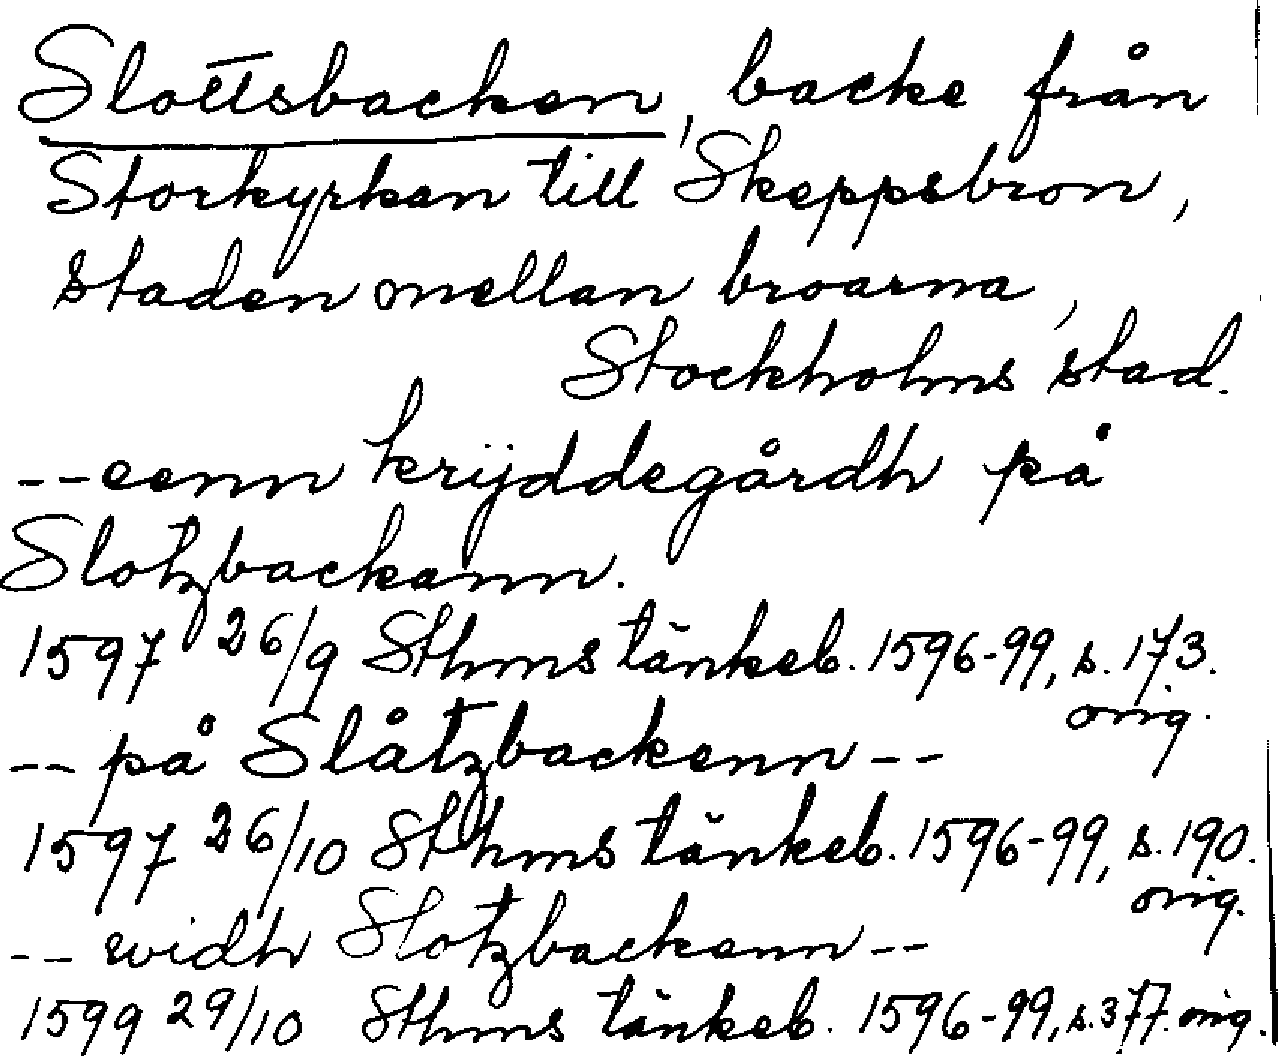 Slottsbacken, backe från
Storkyrkan till Skeppsbron,
staden mellan broarna,
Stockholms stad.
--eenn krÿddegårdh på
Slotzbackenn.
1597 26/9 Sthms tänkeb. 1596-99, s. 173.
orig.
-- på Slåtzbackenn --
1597 26/10 Sthms tänkeb. 1596-99, s. 190.
orig.
-- widh Slotzbackenn --
1599 29/10 Sthms tänkeb. 1596-99, s. 377. orig.